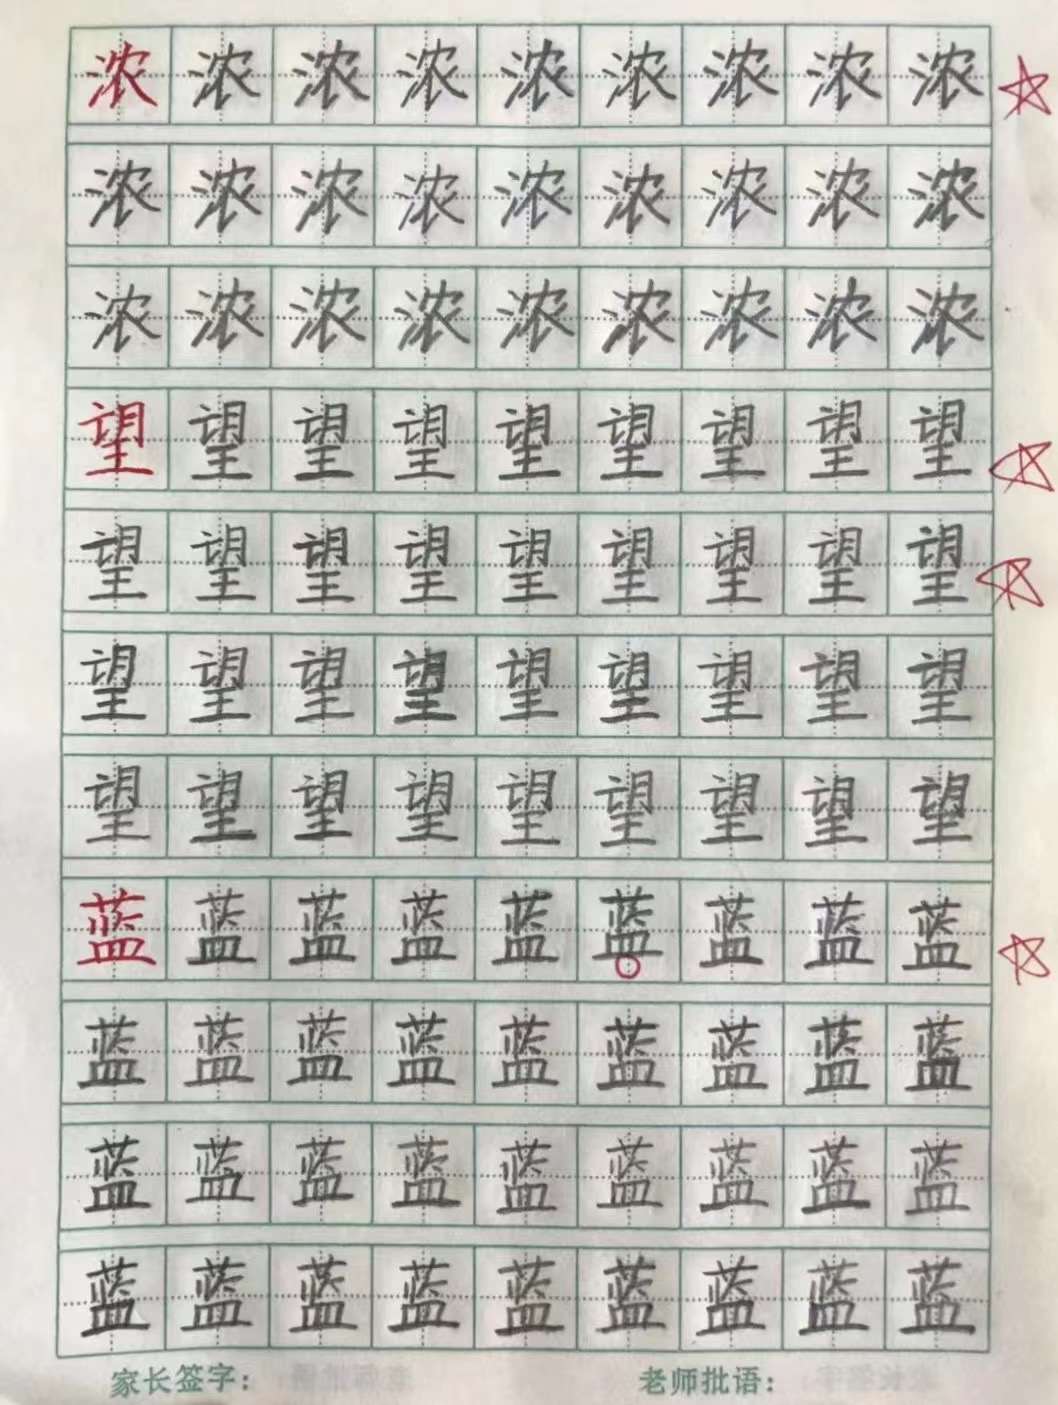 浓浓浓浓浓浓浓浓浓
浓浓浓浓浓浓浓浓浓
浓浓浓浓浓浓浓浓浓
望望望望望望望望望
望望望望望望望望望
望望望望望望望望望
望望望望望望望望望
蓝蓝蓝蓝蓝蓝蓝蓝蓝
蓝蓝蓝蓝蓝蓝蓝蓝蓝
蓝蓝蓝蓝蓝蓝蓝蓝蓝
蓝蓝蓝蓝蓝蓝蓝蓝蓝
家长签字： 老师批语：